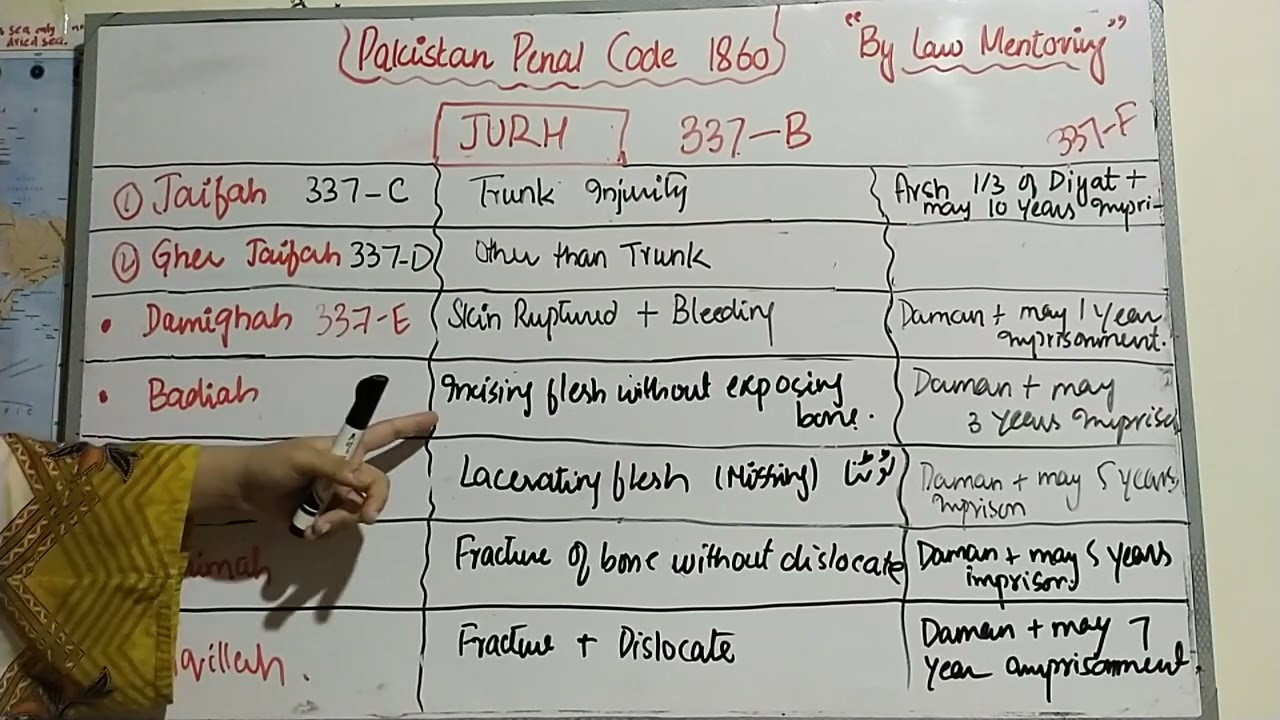 Dried sea.
Pakistan Penal Code 1860
"By Law Mentoring"
JURH 337-B 337-F
① Jaifah 337-C Trunk Injurity Arsh 1/3 of Diyat +
may 10 years Impri-
② Gher Jaifah 337-D Other than Trunk
• Damighah 337-E Skin Ruptured + Bleeding Daman + may 1 year
imprisonment.
• Badiah Incising flesh without exposing
bone. Daman + may
3 years Impriso
Lacerating flesh (Missing) Daman + may 5 years
Imprison
imah Fracture of bone without dislocate Daman + may 5 years
imprison
qillah. Fracture + Dislocate Daman + may 7
year amprisonment.